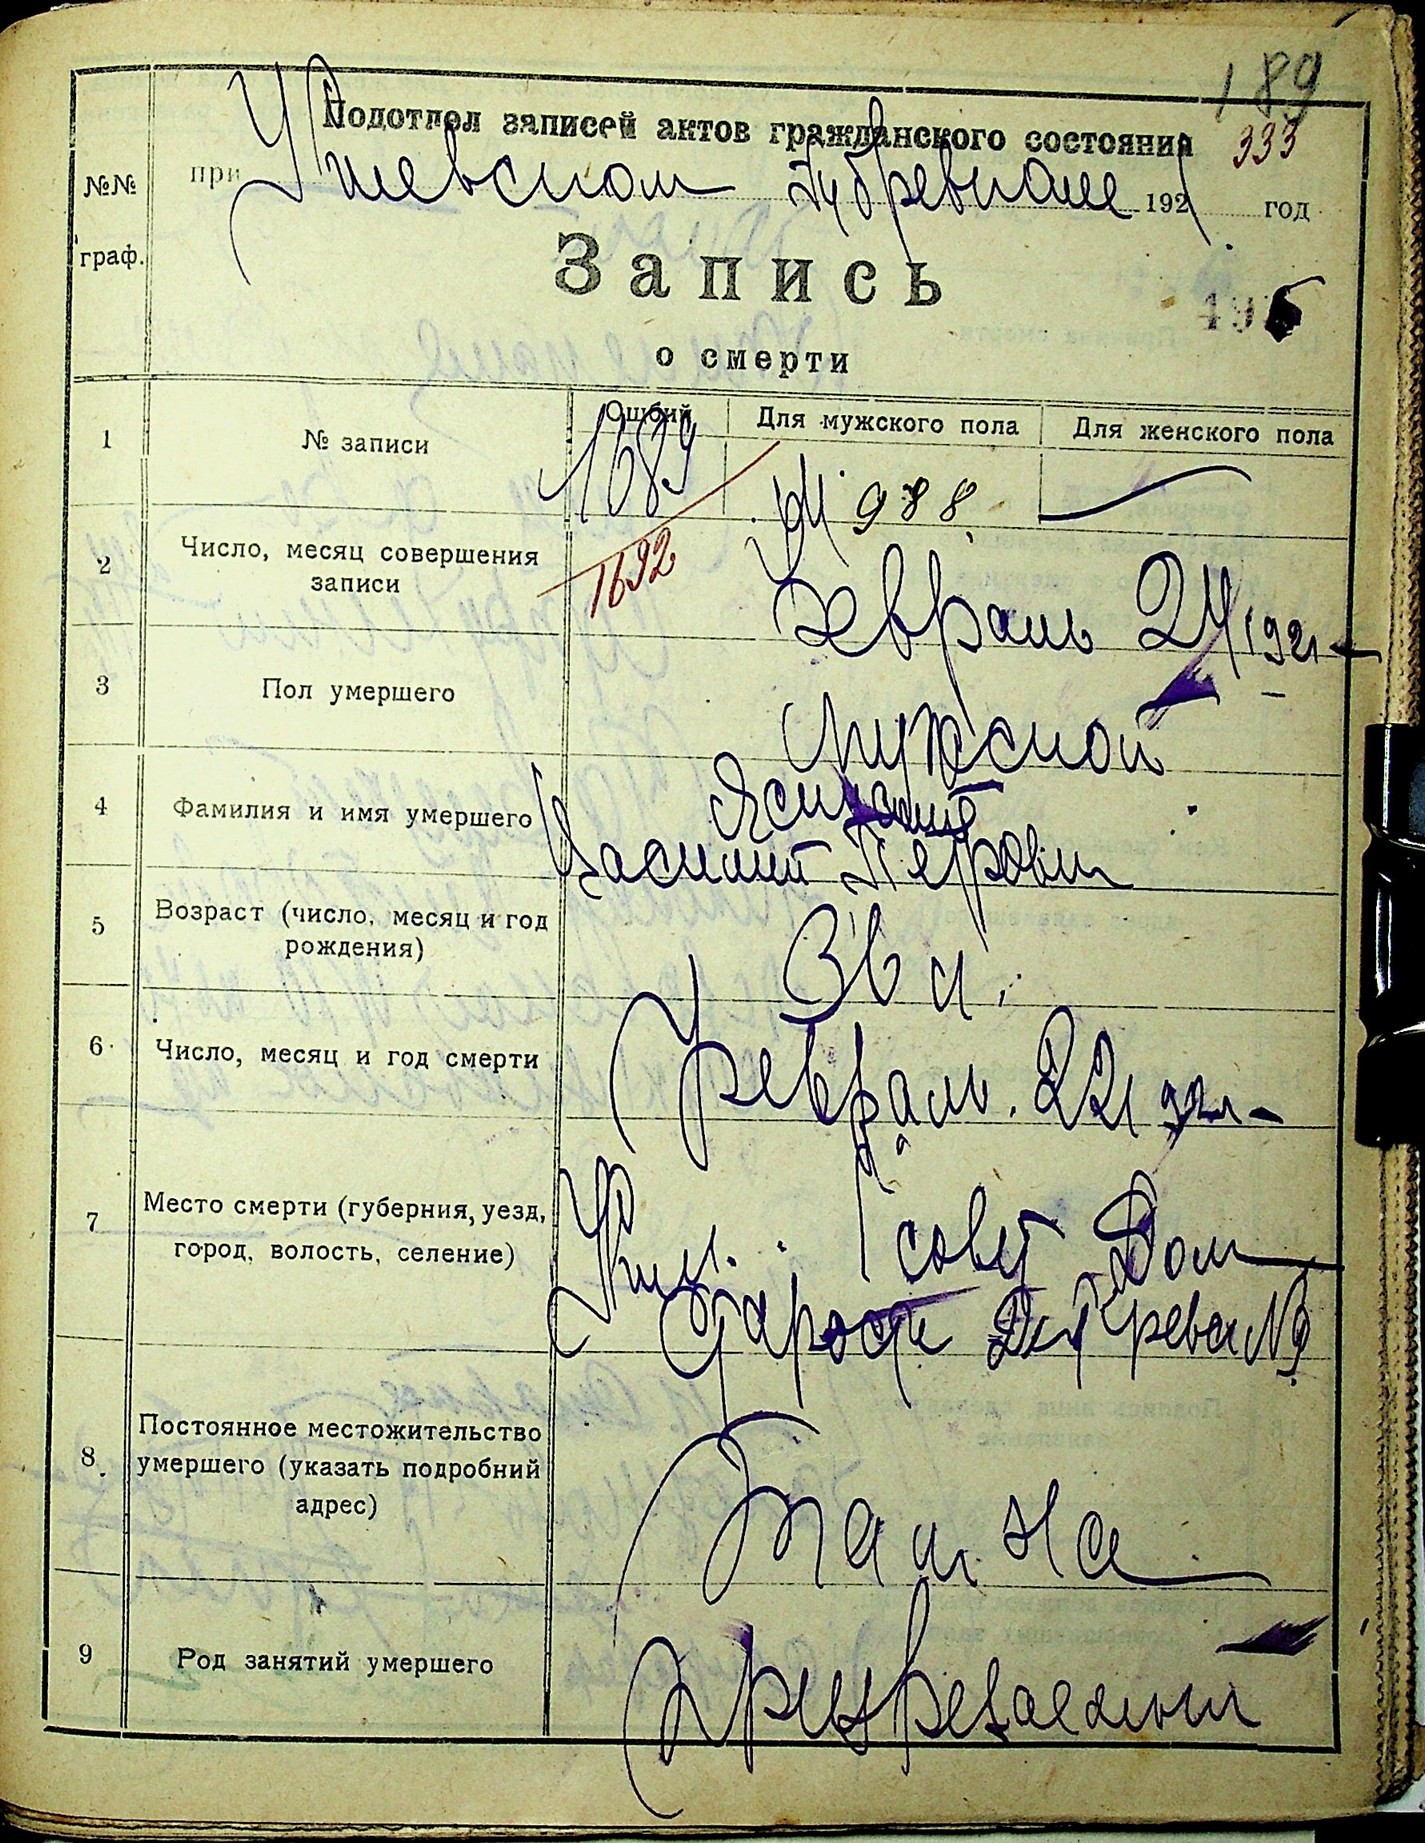 189
Подотдел записей актов гражданского состояния
333
при Губревкоме 1921 год
№№ граф.
Запись
о смерти
1 № записи
Общий Для мужского пола Для женского пола
1689 М 988
1692
2 Число, месяц совершения записи
Февраль 24 1921
3 Пол умершего
Мужской
4 Фамилия и имя умершего
Василий Петрович
5 Возраст (число, месяц и год рождения)
6 Число, месяц и год смерти
Февраль 22 1921
7 Место смерти (губерния, уезд, город, волость, селение)
Киш. совет Дом
Старости
8 Постоянное местожительство умершего (указать подробний адрес)
Там на
9 Род занятий умершего
Призреваемый